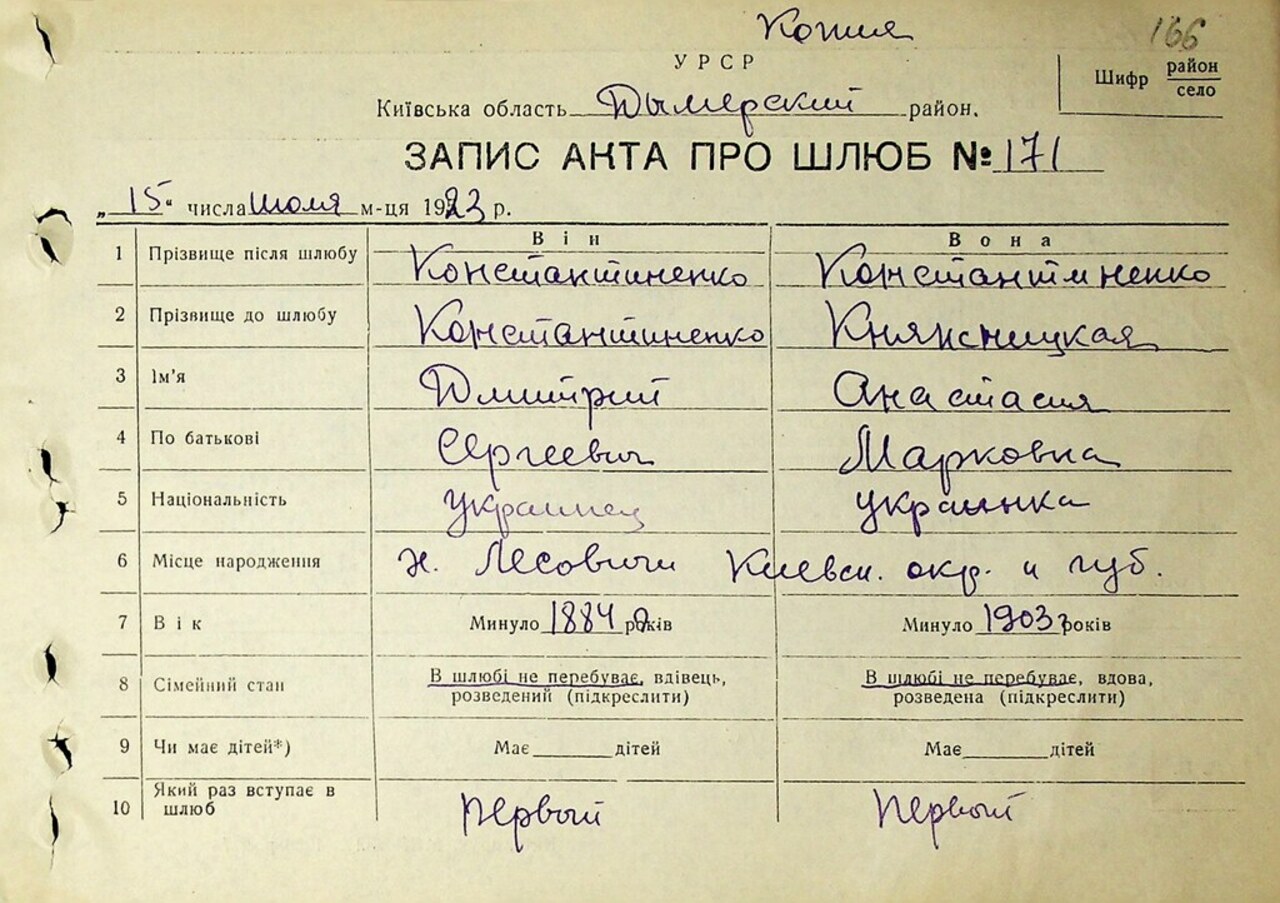 Копия
166
УРСР
Шифр район
село
Київська область Дымерский район.
ЗАПИС АКТА ПРО ШЛЮБ №171
„15“ числа июля м-ця 1923 р.
Він Вона
1 Прізвище після шлюбу Константиненко Константиненко
2 Прізвище до шлюбу Константиненко
3 Ім'я Дмитрий Анастасия
4 По батькові Сергеевич Марковна
5 Національність украинец украинка
6 Місце народження н. Лесовичи Киевск. окр. и губ.
7 Вік Минуло 1884 років Минуло 1903 років
8 Сімейний стан В шлюбі не перебуває, вдівець, В шлюбі не перебуває, вдова,
розведений (підкреслити) розведена (підкреслити)
9 Чи має дітей*) Має дітей Має дітей
10 Який раз вступає в шлюб первый первый